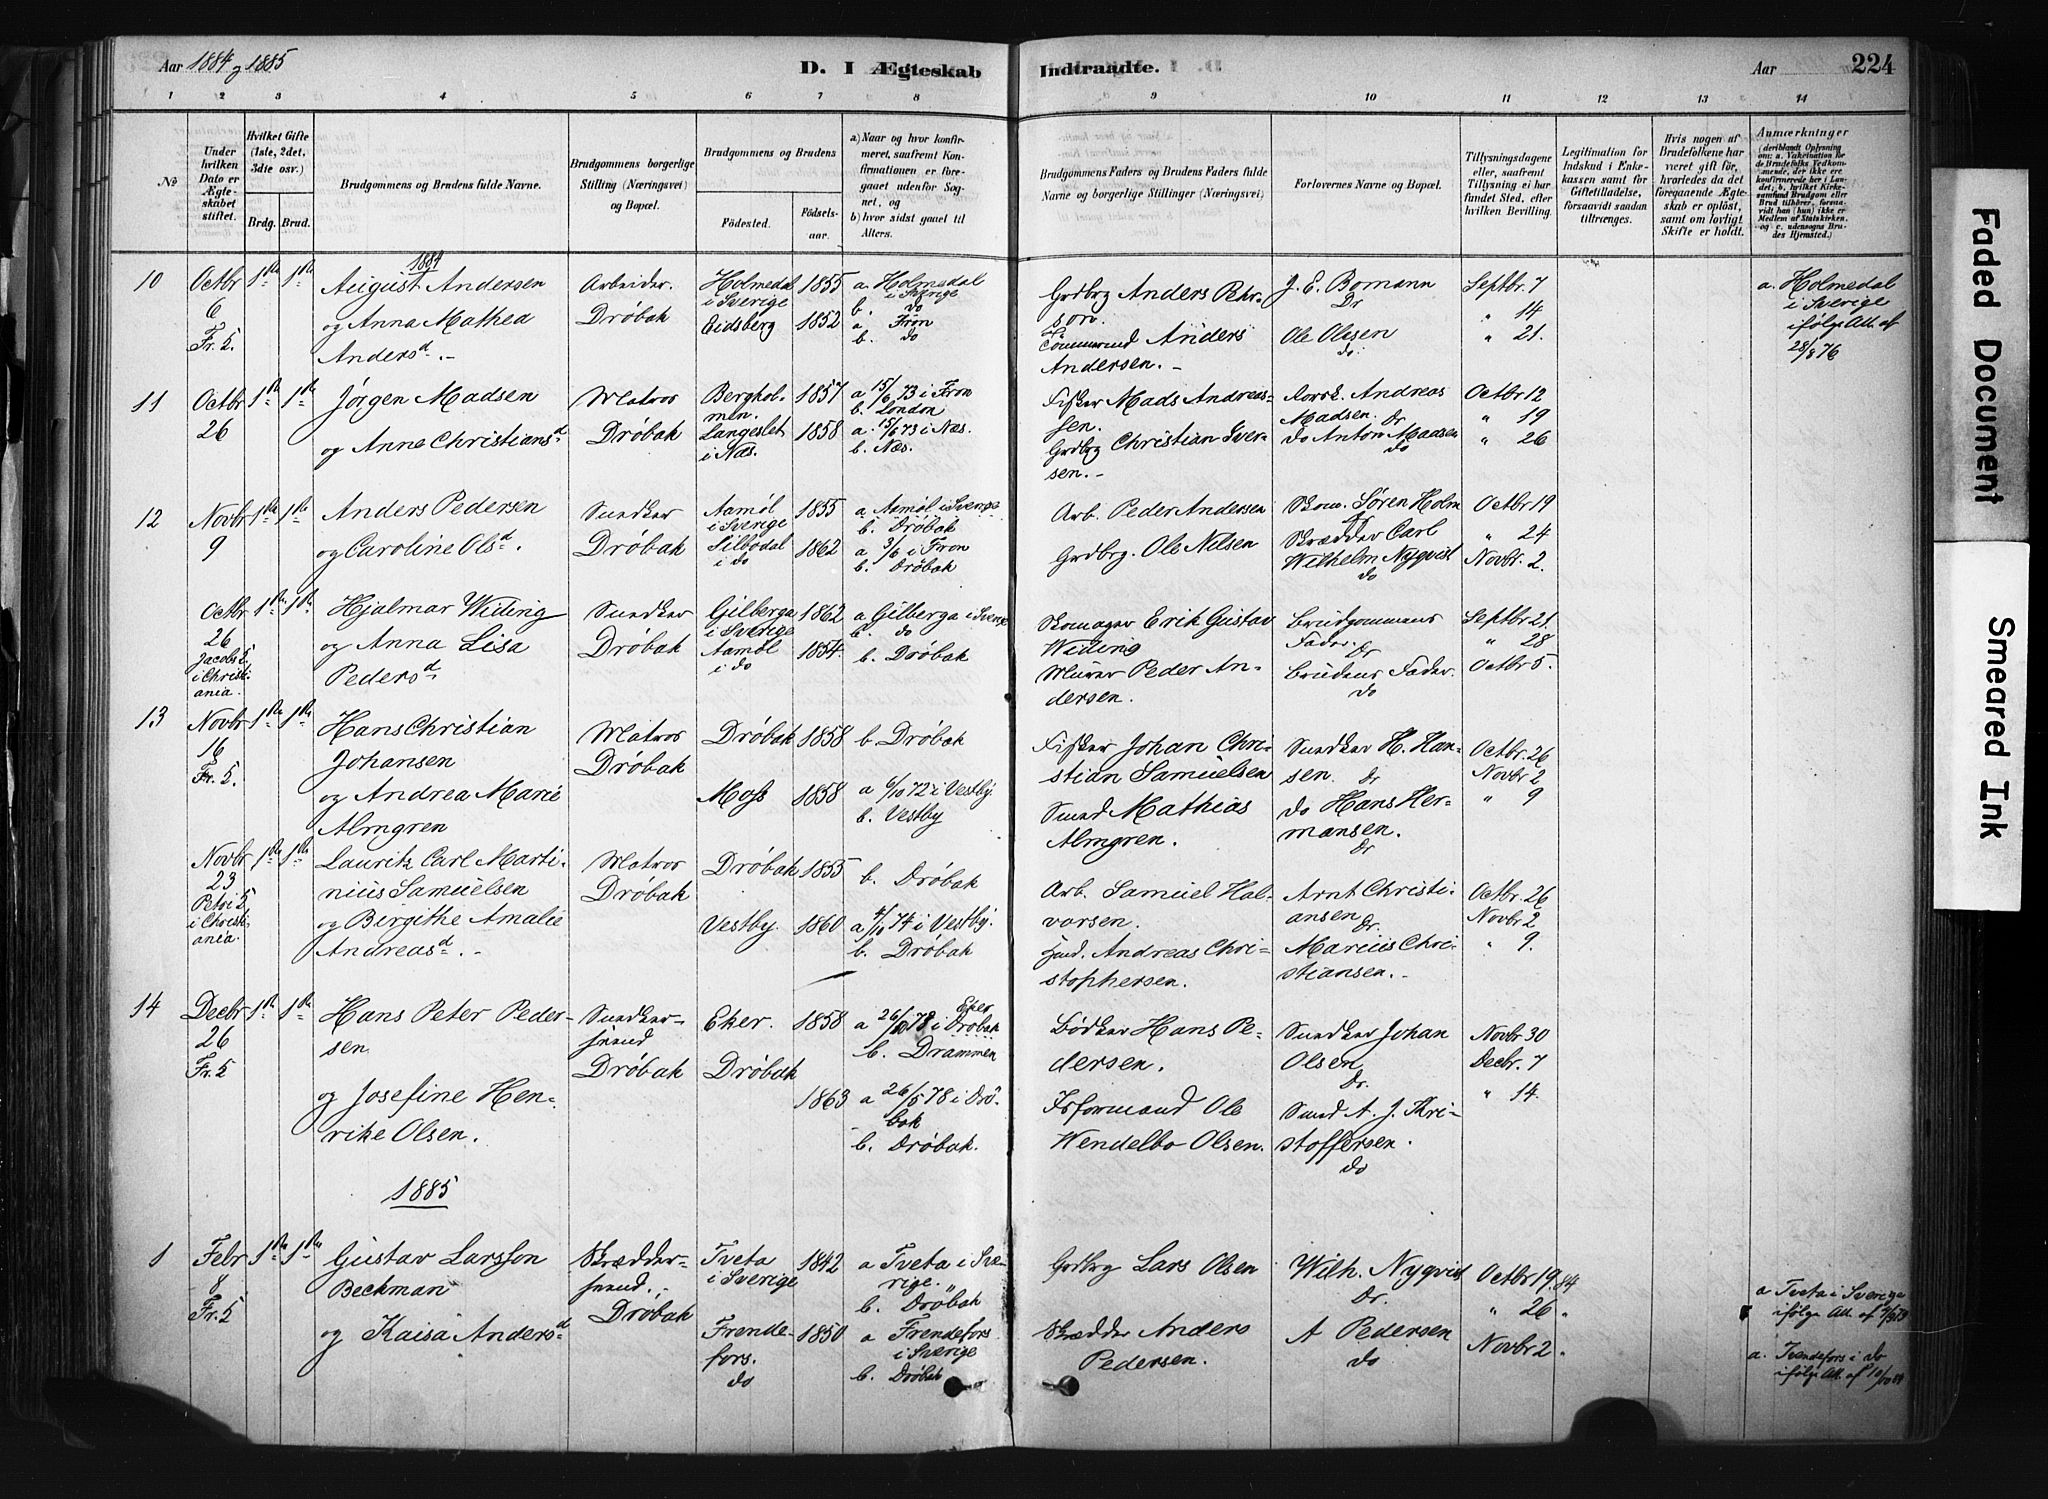 Aar 1884 og 1885
D. I Ægteskab Indtraadte.
Aar 224
1 2 3 4 5 6 7 8 9 10 11 12 13 14
No
Under hvilken Dato er Ægteskabet stiftet.
Hvilket Gifte (1ste, 2det, 3die osv.)
Brdg. Brud.
Brudgommens og Brudens fulde Navne.
Brudgommens borgerlige Stilling (Næringsvei) og Bopæl.
Brudgommens og Brudens
Födested. Födselsaar.
a) Naar og hvor konfirmeret, saafremt Konfirmationen er foregaaet udenfor Sognet, og
b) hvor sidst gaaet til Alters.
Brudgommens Faders og Brudens Faders fulde Navne og borgerlige Stillinger (Næringsvei)
Forlovernes Navne og Bopæl.
Tillysningsdagene eller, saafremt Tillysning ei har fundet Sted, efter hvilken Bevilling.
Legitimation for Indskud i Enkekassen samt for Giftetilladelse, forsaavidt saadan tiltrænges.
Hvis nogen af Brudefolkene har været gift för, hvorledes da det foregaaende Ægteskab er oplöst, samt om lovligt Skifte er holdt.
Anmærkninger (deriblandt Oplysning om: a. Vakcination for de Brudefolks Vedkommende, der ikke ere konfirmerede her i Landet; b. hvilket Kirkesamfund Brudgom eller Brud tilhörer, forsaavidt han (hun) ikke er Medlem af Statskirken, og c. udensogns Brudes Hjemsted.)
1884
10 Octbr 6 Fr. 5. 1ste 1ste
August Andersen
og Anna Mathea
Andersd. -
Arbeider.
Drøbak
Holmedal i Sverige 1855
Eidsberg 1852
a. Holmedal i Sverige
b. do
a. Fron
b. do
Grdbrg Anders Pehrson.
Anders Andersen. -
J. E. Bomann Dr
Ole Olesen do
Septbr 7
" 14
" 21.
a. Holmedal i Sverige ifølge Att. af 28/8 76
11 Octbr 26 1ste 1ste
Jørgen Madsen
og Anne Christiansd
Matros
Drøbak
Bergholmen. 1857
Langeslet i Næs. 1858
a 15/6 73 i Fron
b. London
a. 15/6 73 i Næs.
b. Næs.
Fisker Mads Andreassen.
Grdbrg Christian Iversen. -
Andreas Madsen. Dr
do Anton Madsen do
Octbr 12
" 19
" 26
12 Novbr 9 1ste 1ste
Anders Pedersen
og Caroline Olsd.
Snedker
Drøbak
Aamøl i Sverige 1855
Silbodal i do 1862
a Aamøl i Sverige
b. Drøbak
a 3/6 i Fron
b. Drøbak
Arb. Peder Andersen
Grdbrg. Ole Nilsen
Skom. Søren Holm
Skrædder Carl Wilhelm Nyqvist do
Octbr 19
" 24
Novbr. 2.
Octbr 26 Jacobs K i Christiania. 1ste 1ste
Hjalmar Widing
og Anna Lisa
Pedersd
Snedker
Drøbak
Gilberga i Sverige 1862
Aamøl i do 1854.
a Gilberga i Sverige
b. do
b. Drøbak
Skomager Erik Gustav Widing
Murer Peder Andersen.
Brudgommens Fader. Dr
Brudens Fader. do
Septbr 21.
" 28
Octbr 5.
13 Novbr 16 Fr. 5. 1ste 1ste
Hans Christian
Johansen
og Andrea Marie
Almgren
Matros
Drøbak
Drøbak 1858
Moss 1858
b Drøbak
a 6/10 72 i Vestby
b. Vestby
Fisker Johan Christian Samuelsen
Smed Mathias Almgren.
Snedker H. Hansen. Dr
do Hans Hermansen. Dr
Octbr. 26
Novbr 2
" 9
Novbr 23 i Christiania. 1ste 1ste
Lauritz Carl Martinius Samuelsen
og Birgithe Amalie
Andreasd. -
Matros
Drøbak
Drøbak 1855
Vestby. 1860
b. Drøbak
a 4/10 74 i Vestby.
b. Drøbak
Arb. Samuel Halvorsen.
Andreas Christophersen.
Arnt Christiansen Dr.
Marius Christiansen. -
Octbr. 26
Novbr. 2
" 9.
14 Decbr 26 Fr. 5 1ste 1ste
Hans Peter Pedersen
og Josefine Henrike Olsen.
Snedkersvend
Drøbak
Eker. 1858
Drøbak 1863
a 26/5 78 i Eker Drøbak
b. Drammen
a 26/5 78 i Drøbak
b. Drøbak.
Bødker Hans Pedersen.
Isformand Ole Wendelbo Olsen.
Snedker Johan Olsen Dr.
Smed A. J. Kristoffersen. do
Novbr. 30
Decbr. 7
" 14.
1885
1 Febr 8 Fr. 5 1ste 1ste
Gustav Larsson
Beckman
og Kaisa Andersd
Skræddersvend.
Drøbak
Tveta i Sverige 1842
Frendefors. do 1850
a Tveta i Sverige.
b. Drøbak
a Frendefors i Sverige
b. Drøbak
Grdbrg Lars Olsen
Skrædder Anders Pedersen.
Wilh. Nyqvist Dr.
A Pedersen do
Octbr 19. 84
" 26 "
Novbr 2 "
a Tveta i Sverige ifølge Att. af
a. Frendefors i do ifølge Att. af
Faded Document
Smeared Ink